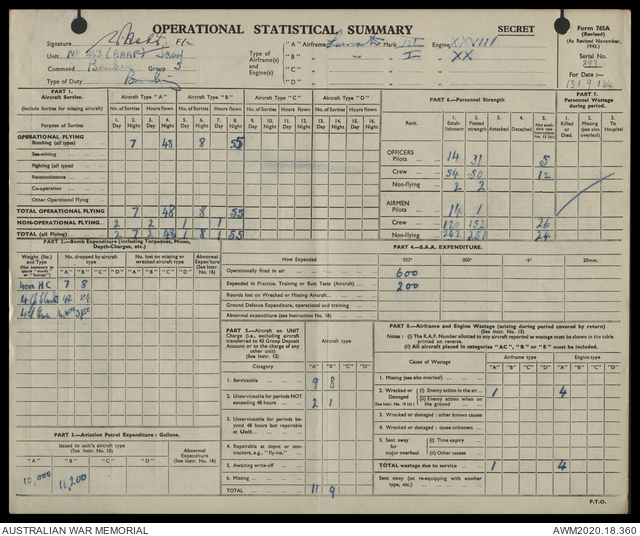 OPERATIONAL STATISTICAL SUMMARY
SECRET
Form 765A
(Revised)
(As Revised November, 1943.)
Serial No.
293
For Date :—
13/9/44
Signature F/L
Unit No 463 (RAAF) Sqdn
Command Bomber Group 5
Type of Duty Bombing
Type of Airframe(s) and Engine(s):
"A" Airframe Lancaster Mark III Engine XXVIII
"B" " I " XX
"C"
"D"
PART 1.
Aircraft Sorties.
(Include Sorties for missing aircraft)
Aircraft Type "A" Aircraft Type "B" Aircraft Type "C" Aircraft Type "D"
No. of Sorties Hours flown No. of Sorties Hours flown No. of Sorties Hours flown No. of Sorties Hours flown
Purpose of Sorties
1. Day 2. Night 3. Day 4. Night 5. Day 6. Night 7. Day 8. Night 9. Day 10. Night 11. Day 12. Night 13. Day 14. Night 15. Day 16. Night
OPERATIONAL FLYING
Bombing (all types) 7 48 8 55
Sea-mining
Fighting (all types)
Reconnaissance
Co-operation
Other Operational Flying
TOTAL OPERATIONAL FLYING 7 48 8 55
NON-OPERATIONAL FLYING 2 2 1 1
TOTAL (all Flying) 2 7 2 48 1 8 1 55
PART 6.—Personnel Strength
Rank.
1. Establishment 2. Posted strength 3. Attached 4. Detached 5. Not available
OFFICERS
Pilots 14 31 5
Crew 54 50 12
Non-flying 2 2
AIRMEN
Pilots 14 1
Crew 130 152 26
Non-flying 242 251 24
PART 7.
Personnel Wastage during period.
1. Killed or Died. 2. Missing (see also overleaf) 3. To Hospital
PART 2.—Bomb Expenditure (including Torpedoes, Mines, Depth-Charges, etc.)
Weight (lbs.) and Type
No. dropped by aircraft type
No. lost on missing or wrecked aircraft type
Abnormal Expen'ture (See Instr. No. 16)
"A" "B" "C" "D" "A" "B" "C" "D"
4000 HC 7 8
PART 3.—Aviation Petrol Expenditure : Gallons.
Issued to unit's aircraft type
(See Instr. No. 10)
Abnormal Expenditure
(See Instr. No. 16)
"A" "B" "C" "D"
10,000 11,200
PART 4.—S.A.A. EXPENDITURE.
How Expended ·303" ·300" ·5" 20mm.
Operationally fired in air 600
Expended in Practice, Training or Butt Tests (Aircraft) 200
Rounds lost on Wrecked or Missing Aircraft
Ground Defence Expenditure, operational and training
Abnormal expenditure (see Instruction No. 16)
PART 5.—Aircraft on UNIT Charge (i.e., excluding aircraft transferred to 43 Group Deposit Account or to the charge of any other unit)
(See Instr. 12)
Aircraft type
Category "A" "B" "C" "D"
1. Serviceable 9 8
2. Unserviceable for periods NOT exceeding 48 hours 2 1
3. Unserviceable for periods beyond 48 hours but repairable at Unit
4. Repairable at depot or contractors, e.g., "fly-ins."
5. Awaiting write-off
6. Missing
TOTAL 11 9
PART 8.—Airframe and Engine Wastage (arising during period covered by return)
(See Instr. No. 15)
Notes : (i) The R.A.F. Number allotted to any aircraft reported as wastage must be shown in the table printed on reverse.
(ii) All aircraft placed in categories "AC", "B" or "E" must be included.
Cause of Wastage
Airframe type Engine type
"A" "B" "C" "D" "A" "B" "C" "D"
1. Missing (see also overleaf)
2. Wrecked or Damaged (i) Enemy action in the air 1 4
(See Instr. No. 15 (a).) (ii) Enemy action when on the ground
3. Wrecked or damaged : other known causes
4. Wrecked or damaged : cause unknown
5. Sent away for major overhaul (i) Time expiry
(ii) Other causes
TOTAL wastage due to service 1 4
Sent away (on re-equipping with another type, etc.)
P.T.O.
AUSTRALIAN WAR MEMORIAL
AWM2020.18.360